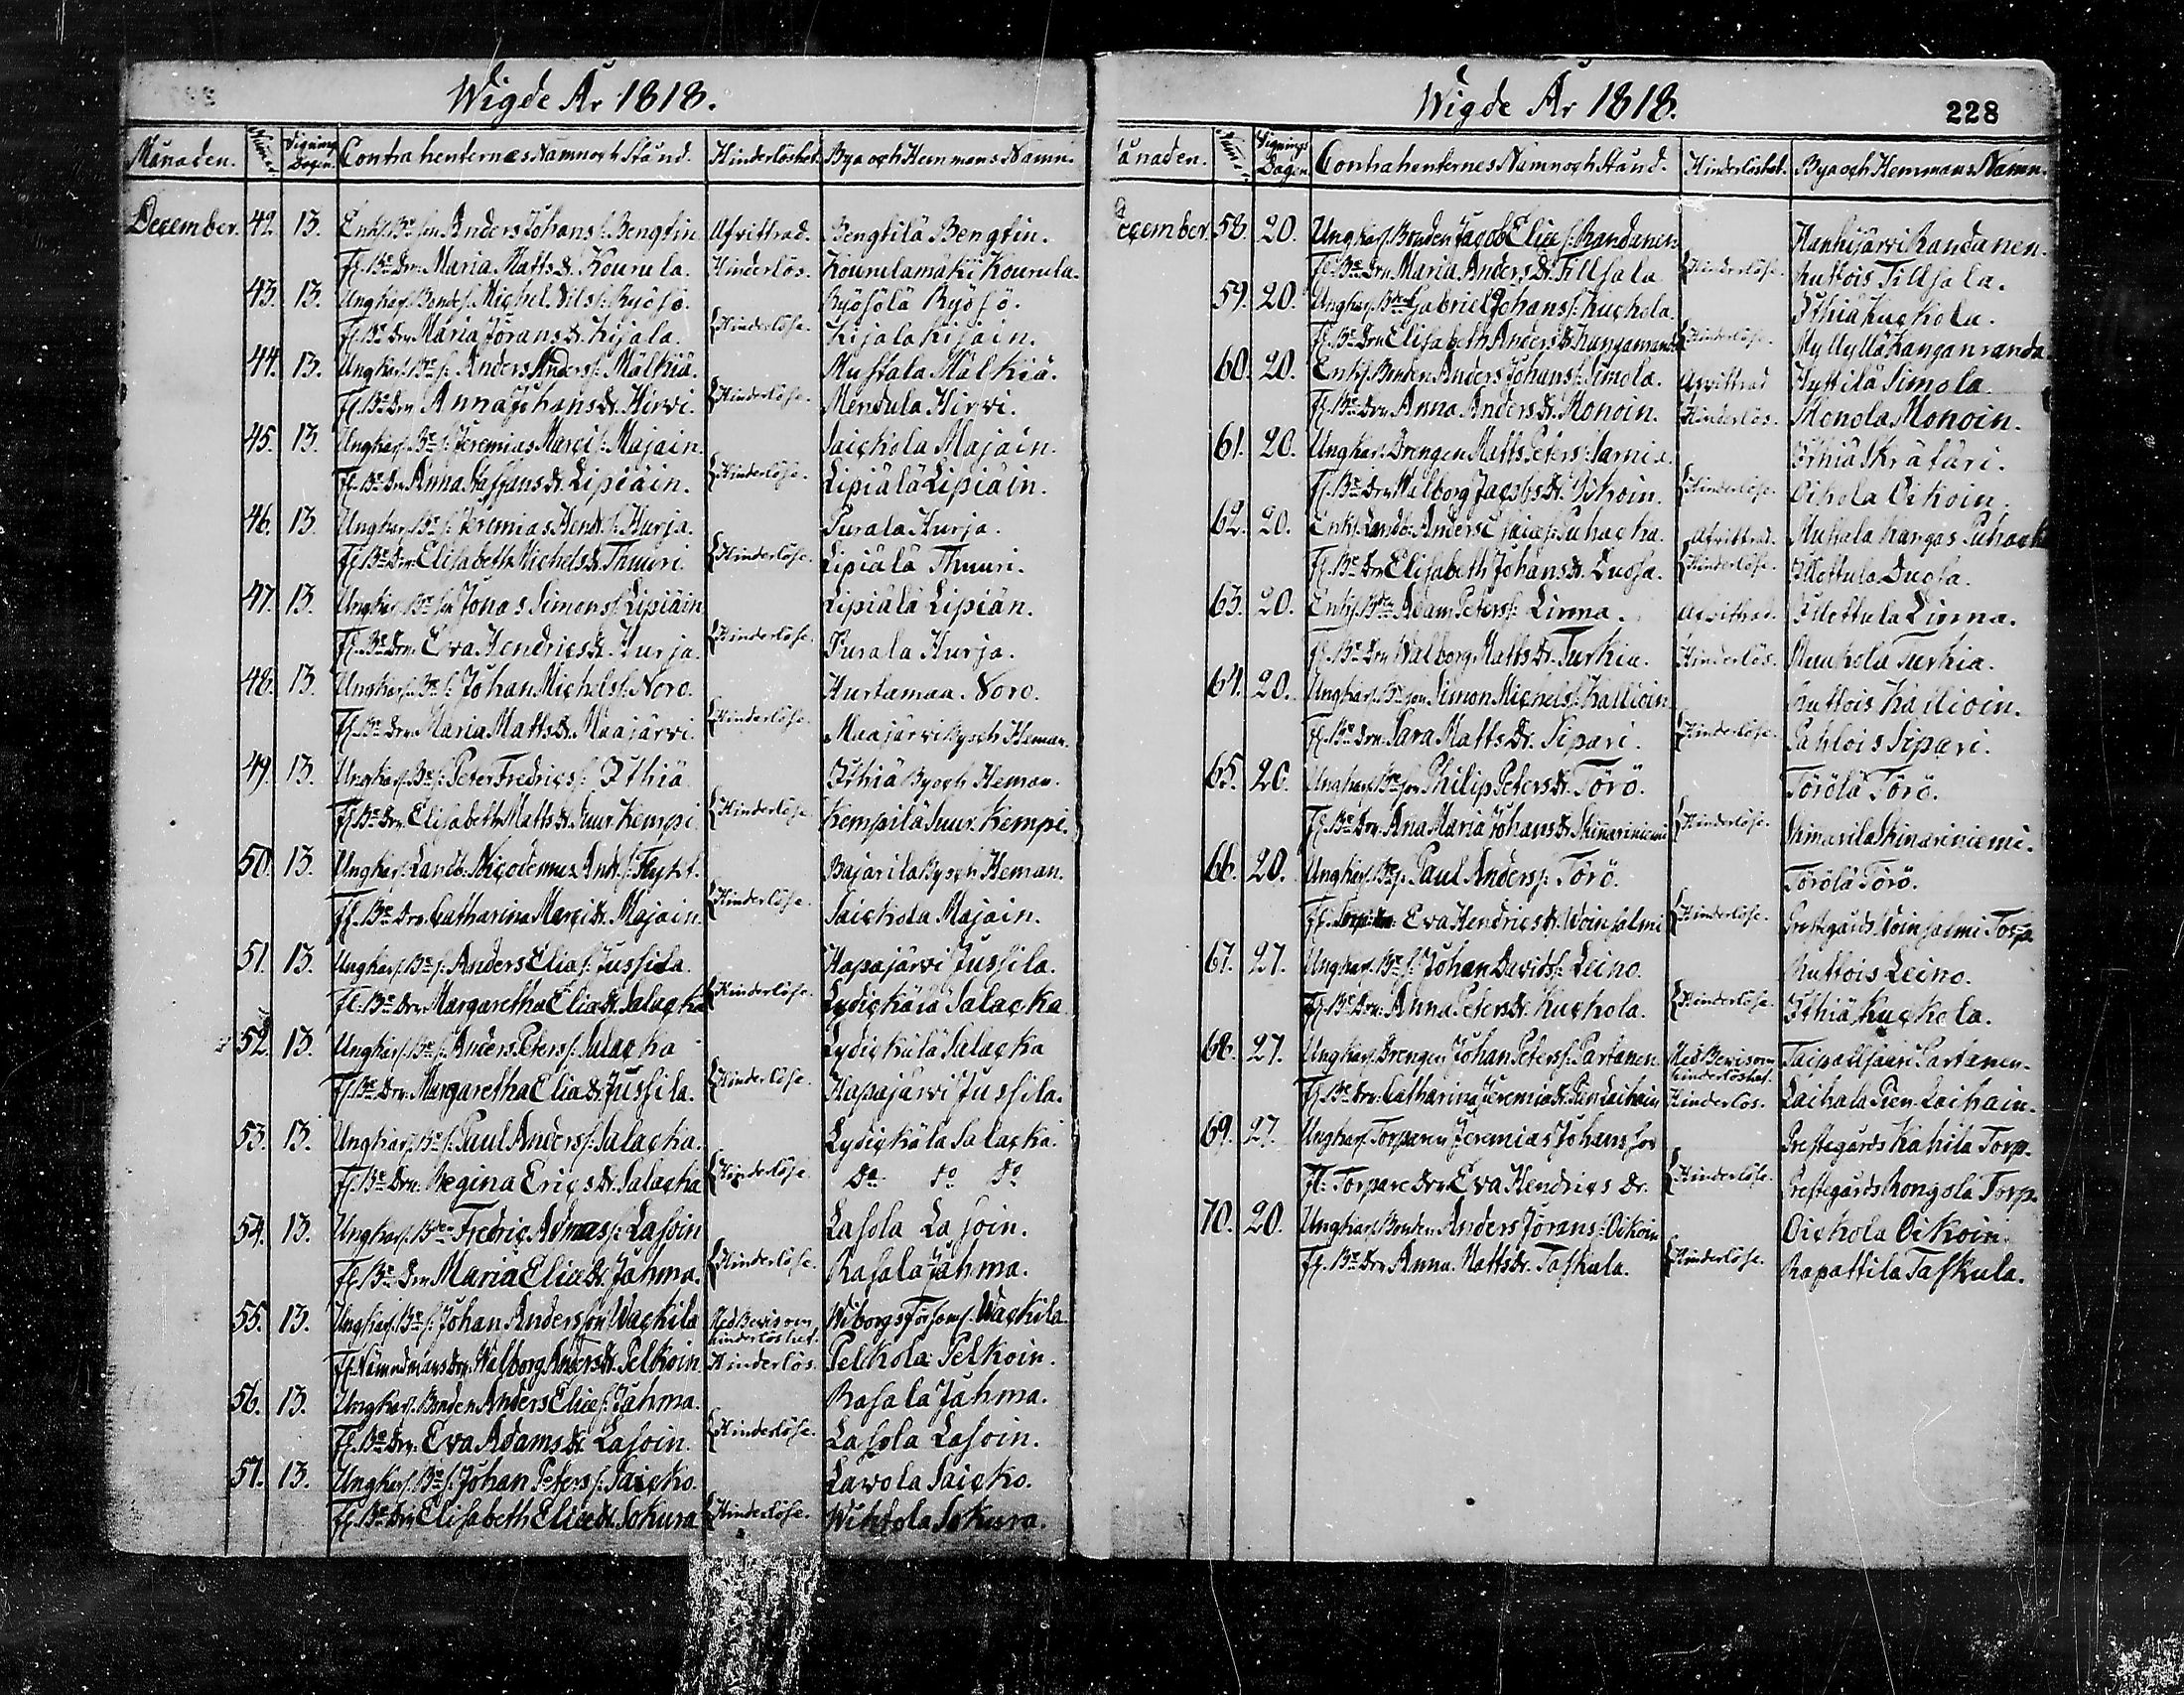 Wigde År 1818.
Månaden. Num: Vignings Dagen. Contrahenternes Namn och Stånd. Hinderlöshet. Bya och Hemmans Namn.
December. 42. 13. Enkl. Bde son Anders Johans s: Bengtin Afvittrad. Bengtilä Bengtin.
Fl. Be Dr: Maria Matts Dr. Kourula. Hinderlös. Kourulamäki Kourula.
43. 13. Ungkarl. Bonde s: Michel Nils s: Ryösö. Ryösölä Ryösö.
Fl. Be Dr: Maria Jörans Dr. Kijala. Hinderlöse. Kijala Kijain.
44. 13. Ungkarl. Be s: Anders Anders s: Mälkiä. Mustala Mälkiä.
Fl. Be Dr: Anna Johans Dr. Hirvi. Hinderlöse. Mendula Hirvi.
45. 13. Ungkarl. Be s: Jeremias Marci s: Majain. Saickola Majain.
Fl. Be Dr: Anna Staffans Dr. Lipiäin. Hinderlöse. Lipiälä Lipiäin.
46. 13. Ungkarl. Be s: Jeremias Hend. s: Hurja. Purala Hurja.
Fl. Be Dr: Elisabeth Michels Dr. Thuuri. Hinderlöse. Lipiälä Thuuri.
47. 13. Ungkarl. Be son Jonas Simons s: Lipiäin Lipiälä Lipiän.
Fl. Be Dr: Eva Hendrics Dr. Hurja. Hinderlöse. Purala Hurja.
48. 13. Ungkarl. Be s: Johan Michels s: Noro. Hurtamaa Noro.
Fl. Be Dr: Maria Matts Dr. Maajärvi. Hinderlöse. Maajärvi By och Heman.
49. 13. Ungkarl. Be s: Peter Fredrics s: Ithiä. Ithiä By och Heman.
Fl. Be Dr: Elisabeth Matts Dr. Suur Kempi Hinderlöse. Kempilä Suur Kempi.
50. 13. Ungkarl. Landb: Nicodemus And. s: Flykt. Bajarila By och Heman.
Fl. Be Dr: Catharina Marci Dr. Majain. Hinderlöse. Saickola Majain.
51. 13. Ungkarl. Be s: Anders Eliæ s: Jussila. Hapajärvi Jussila.
Fl. Be Dr: Margaretha Eliæ Dr. Salacka Hinderlöse. Lydickälä Salacka.
52. 13. Ungkarl. Be s: Anders Peters s: Salacka Lydickälä Salacka
Fl. Be Dr: Margaretha Eliæ Dr. Jussila. Hinderlöse. Hapajärvi Jussila.
53. 13. Ungkarl. Be s: Paul Anders s: Salacka. Lydickälä Salacka.
Fl. Be Dr: Regina Erics Dr. Salacka Hinderlöse. Do do do
54. 13. Ungkarl. Bden Fredric Adams s: Lasoin Lasola Lasoin.
Fl. Be Dr: Maria Eliæ Dr. Jähma. Hinderlöse. Rasala Jähma.
55. 13. Ungkarl. Be s: Johan Andersson Wackila Med Bevis om hinderlöshet. Wiborgs Förs: Wackila.
Fl. Nämndmans Dr: Walborg Anders Dr. Pelkoin Hinderlös. Pelkola Pelkoin.
56. 13. Ungkarl. Bonden Anders Eliæ s: Jähma. Rasala Jähma.
Fl. Be Dr: Eva Adams Dr. Lasoin. Hinderlöse. Lasola Lasoin.
57. 13. Ungkarl. Be s: Johan Peters s: Saicko. Lavola Saicko.
Fl. Be Dr: Elisabeth Eliæ Dr. Sokura Hinderlöse. Wihtola Sokura.
Wigde År 1818. 228
Månaden. Num: Vignings Dagen Contrahenternes Namn och Stånd. Hinderlöshet. Bya och Hemmans Namn.
December. 58. 20. Ungkarl. Bonden Jacob Eliæ s: Randanen Hanhijärvi Randanen.
Fl. Be Dr: Maria Anders Dr. Tillsala Hinderlöse. Kuttois Tillsala.
59. 20. Ungkarl. Bden Gabriel Johans s: Kuckola. Ithiä Kuckola.
Fl. Be Dr: Elisabeth Anders Dr. Kanganranda Hinderlöse. Myllylä Kanganranda.
60. 20. Enkl. Bonden Anders Johans s: Simola. Afvittrad Hyttilä Simola.
Fl. Be Dr: Anna Anders Dr. Monoin. Hinderlös. Monola Monoin.
61. 20. Ungkarl. Drengen Matts Peters s: Sarnia. Ithiä Skrätäri.
Fl. Be Dr: Walborg Jacobs Dr. Oikoin. Hinderlöse. Oikola Oikoin.
62. 20. Enkl. Landb: Anders Esaiæ s: Puhacka. Afvittrad. Mustala Kangas Puhack
Fl. Be Dr: Elisabeth Johans Dr. Duosa. Hinderlöse. Ilottula Duosa.
63. 20. Enkl. Bden Adam Peters s: Linna. Afvittrad. Ilottula Linna.
Fl. Be Dr: Walborg Matts Dr. Turkia. Hinderlös. Muukola Turkia.
64. 20. Ungkarl. Be son Simon Michels s: Kallioin Kuttois Kallioin.
Fl. Be Dr: Sara Matts Dr. Sipari. Hinderlöse. Pahlois Sipari.
65. 20. Ungkarl. Be son Philip Peters Dr. Törö. Törölä Törö.
Fl. Be Dr: Ana Maria Johans Dr. Skinariniemi Hinderlöse. Skinarila Skinariniemi.
66. 20. Ungkarl. Be s: Paul Anders s: Törö. Törölä Törö.
Fl. Eva Hendrics Dr. Woinsalmi Hinderlöse. Prestegårds Woinsalmi Torp
67. 27. Ungkarl. Be s: Johan Davids s: Leino. Kuttois Leino.
Fl. Be Dr: Anna Peters Dr. Kuckola. Hinderlöse. Ithiä Kuckola.
68. 27. Ungkarl. Drengen Johan Peters s: Partanen Med Bevis om hinderlöshet. Taipallsaari Partanen.
Fl. Be Dr: Catharina Jeremiæ Dr. Pien Laihain Hinderlös. Laihala Pien Laihain.
69. 27. Ungkarl. Torparen Jeremias Johans son Prestegårds Kahila Torp.
Fl: Torpare Dr: Eva Hendrics Dr. Hinderlöse. Prestegårds Rongola Torp.
70. 20. Ungkarl. Bonden Anders Jörans s: Oikoin Oickola Oikoin.
Fl. Be Dr: Anna Matts Dr. Taskula. Hinderlöse. Rapattila Taskula.